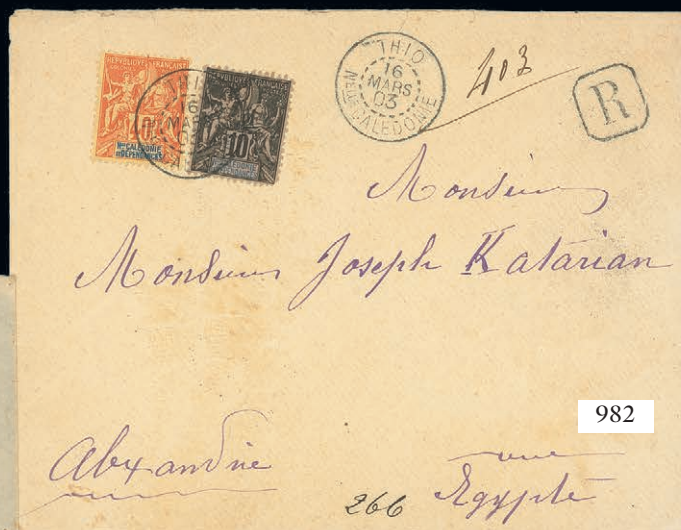 RÉPUBLIQUE FRANÇAISE
40
Nlle CALÉDONIE
et DÉPENDANCES
RÉPUBLIQUE FRANÇAISE
10
THIO
16
MARS
03
THIO
16
MARS
03
Nelle CALEDONIE
403
R
Monsieur
Monsieur Joseph Katarian
982
Alexandrie
Egypte
266